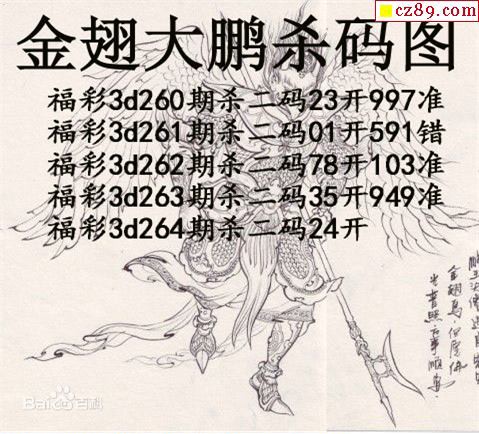 cz89.com
金翅大鹏杀码图
福彩3d260期杀二码23开997准
福彩3d261期杀二码01开591错
福彩3d262期杀二码78开103准
福彩3d263期杀二码35开949准
福彩3d264期杀二码24开
Bai 百科